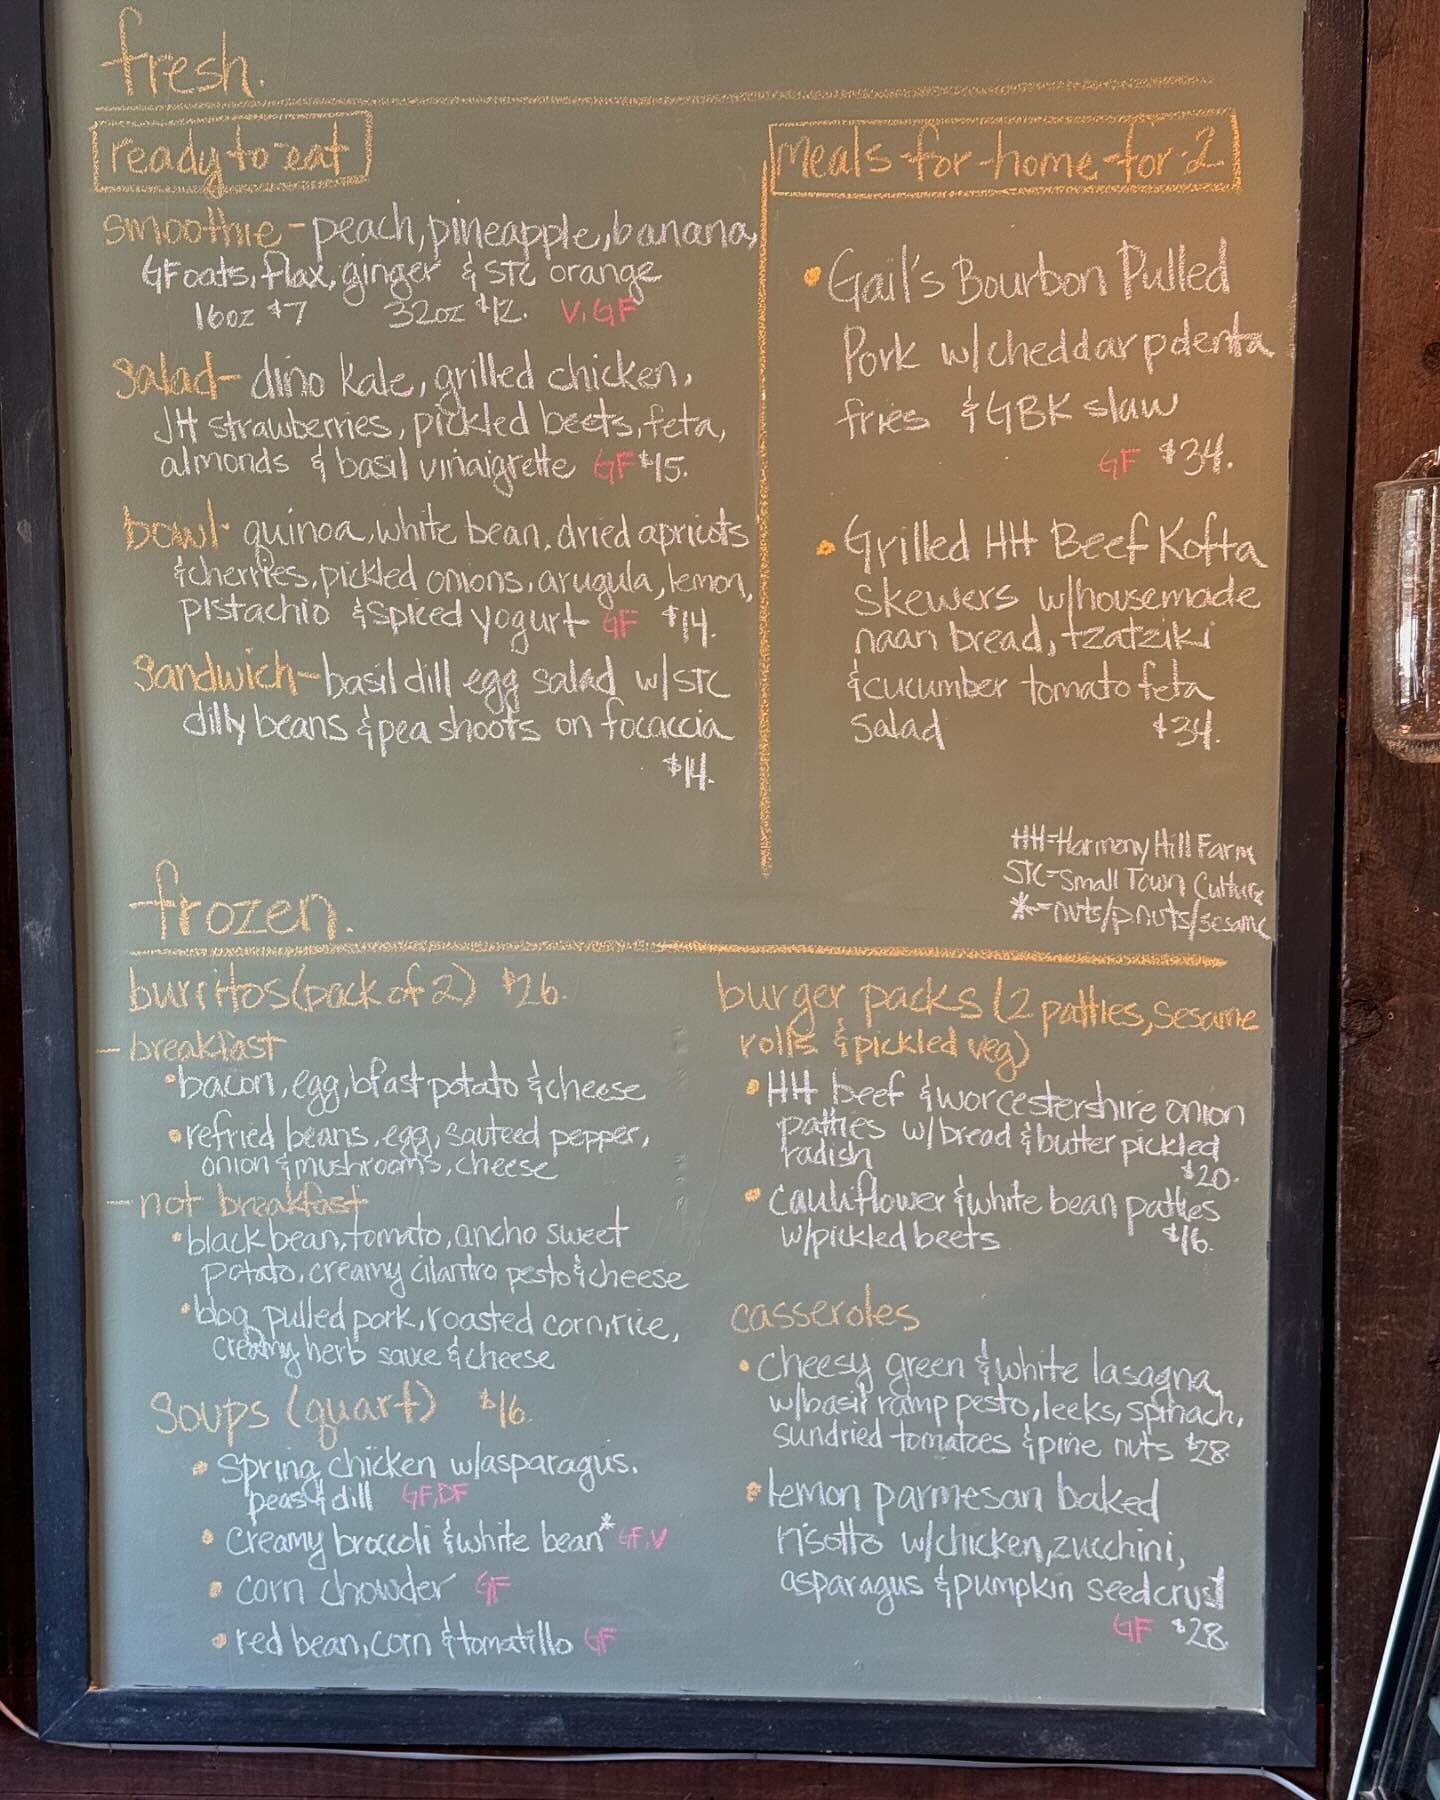 fresh.
ready to eat
smoothie - peach, pineapple, banana,
GF oats, flax, ginger & STC orange
16oz $7 32oz $12. V, GF
salad - dino kale, grilled chicken,
JH strawberries, pickled beets, feta,
almonds & basil vinaigrette GF $15.
bowl - quinoa, white bean, dried apricots
& cherries, pickled onions, arugula, lemon,
pistachio & spiced yogurt GF $14.
sandwich - basil dill egg salad w/STC
dilly beans & pea shoots on focaccia
$14.
Meals-for-home-for-2
• Gail's Bourbon Pulled
Pork w/cheddar polenta
fries & GBK slaw
GF $34.
• Grilled HH Beef Kofta
skewers w/housemade
naan bread, tzatziki
& cucumber tomato feta
salad $34.
HH=Harmony Hill Farm
STC=Small Town Culture
*=nuts/pnuts/sesame
frozen.
burritos (pack of 2) $26.
- breakfast
• bacon, egg, bfast potato & cheese
• refried beans, egg, sauteed pepper,
onion & mushrooms, cheese
- not breakfast
• black bean, tomato, ancho sweet
potato, creamy cilantro pesto & cheese
• bbq pulled pork, roasted corn, rice,
creamy herb sauce & cheese
Soups (quart) $16.
• Spring chicken w/asparagus,
peas & dill GF, DF
• creamy broccoli & white bean* GF, V
• corn chowder GF
• red bean, corn & tomatillo GF
burger packs (2 patties, sesame
rolls & pickled veg)
• HH beef & worcestershire onion
patties w/bread & butter pickled
radish $20.
• cauliflower & white bean patties
w/pickled beets $16.
casseroles
• cheesy green & white lasagna
w/basil ramp pesto, leeks, spinach,
sundried tomatoes & pine nuts $28
• lemon parmesan baked
risotto w/chicken, zucchini,
asparagus & pumpkin seed crust
GF $28